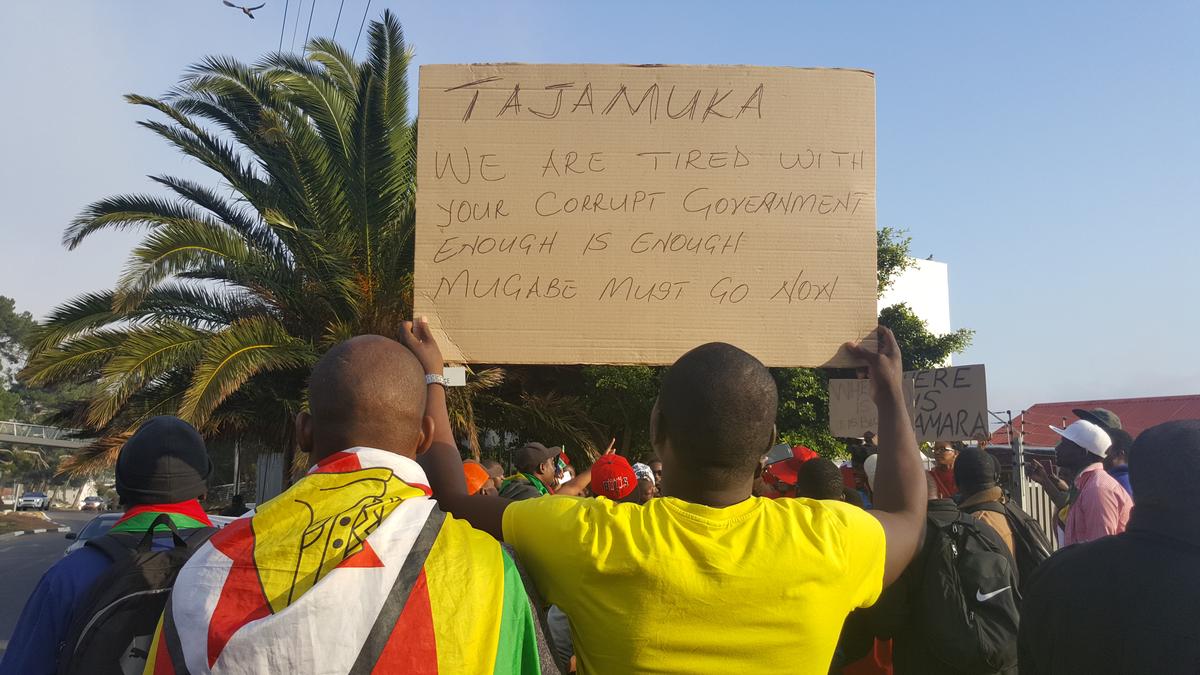 TAJAMUKA
WE ARE TIRED WITH
YOUR CORRUPT GOVERNMENT
ENOUGH IS ENOUGH
MUGABE MUST GO NOW
ERE
IS
AMARA